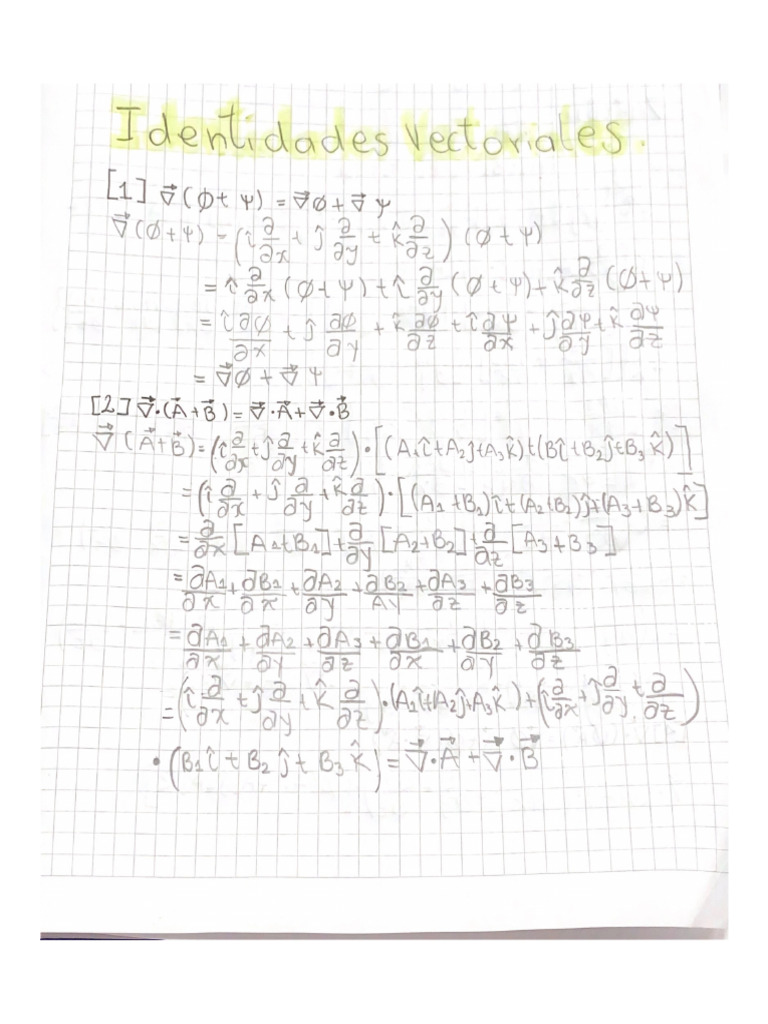 Identidades Vectoriales.
[1] ∇⃗(ϕ+ψ) = ∇⃗ϕ + ∇⃗ψ
∇⃗(ϕ+ψ) = (î ∂/∂x + ĵ ∂/∂y + k̂ ∂/∂z) (ϕ+ψ)
= î ∂/∂x (ϕ+ψ) + î ∂/∂y (ϕ+ψ) + k̂ ∂/∂z (ϕ+ψ)
= î ∂ϕ/∂x + ĵ ∂ϕ/∂y + k̂ ∂ϕ/∂z + î ∂ψ/∂x + ĵ ∂ψ/∂y + k̂ ∂ψ/∂z
= ∇⃗ϕ + ∇⃗ψ
[2] ∇⃗·(A⃗+B⃗) = ∇⃗·A⃗ + ∇⃗·B⃗
∇⃗(A⃗+B⃗) = (î ∂/∂x + ĵ ∂/∂y + k̂ ∂/∂z)·[(A₁î + A₂ĵ + A₃k̂) + (Bî + B₂ĵ + B₃k̂)]
= (î ∂/∂x + ĵ ∂/∂y + k̂ ∂/∂z)·[(A₁+B₁)î + (A₂+B₂)ĵ + (A₃+B₃)k̂]
= ∂/∂x [A₁+B₁] + ∂/∂y [A₂+B₂] + ∂/∂z [A₃+B₃]
= ∂A₁/∂x + ∂B₁/∂x + ∂A₂/∂y + ∂B₂/∂y + ∂A₃/∂z + ∂B₃/∂z
= ∂A₁/∂x + ∂A₂/∂y + ∂A₃/∂z + ∂B₁/∂x + ∂B₂/∂y + ∂B₃/∂z
= (î ∂/∂x + ĵ ∂/∂y + k̂ ∂/∂z)·(A₁î + A₂ĵ + A₃k̂) + (î ∂/∂x + ĵ ∂/∂y + ∂/∂z)
·(B₁î + B₂ĵ + B₃k̂) = ∇⃗·A⃗ + ∇⃗·B⃗